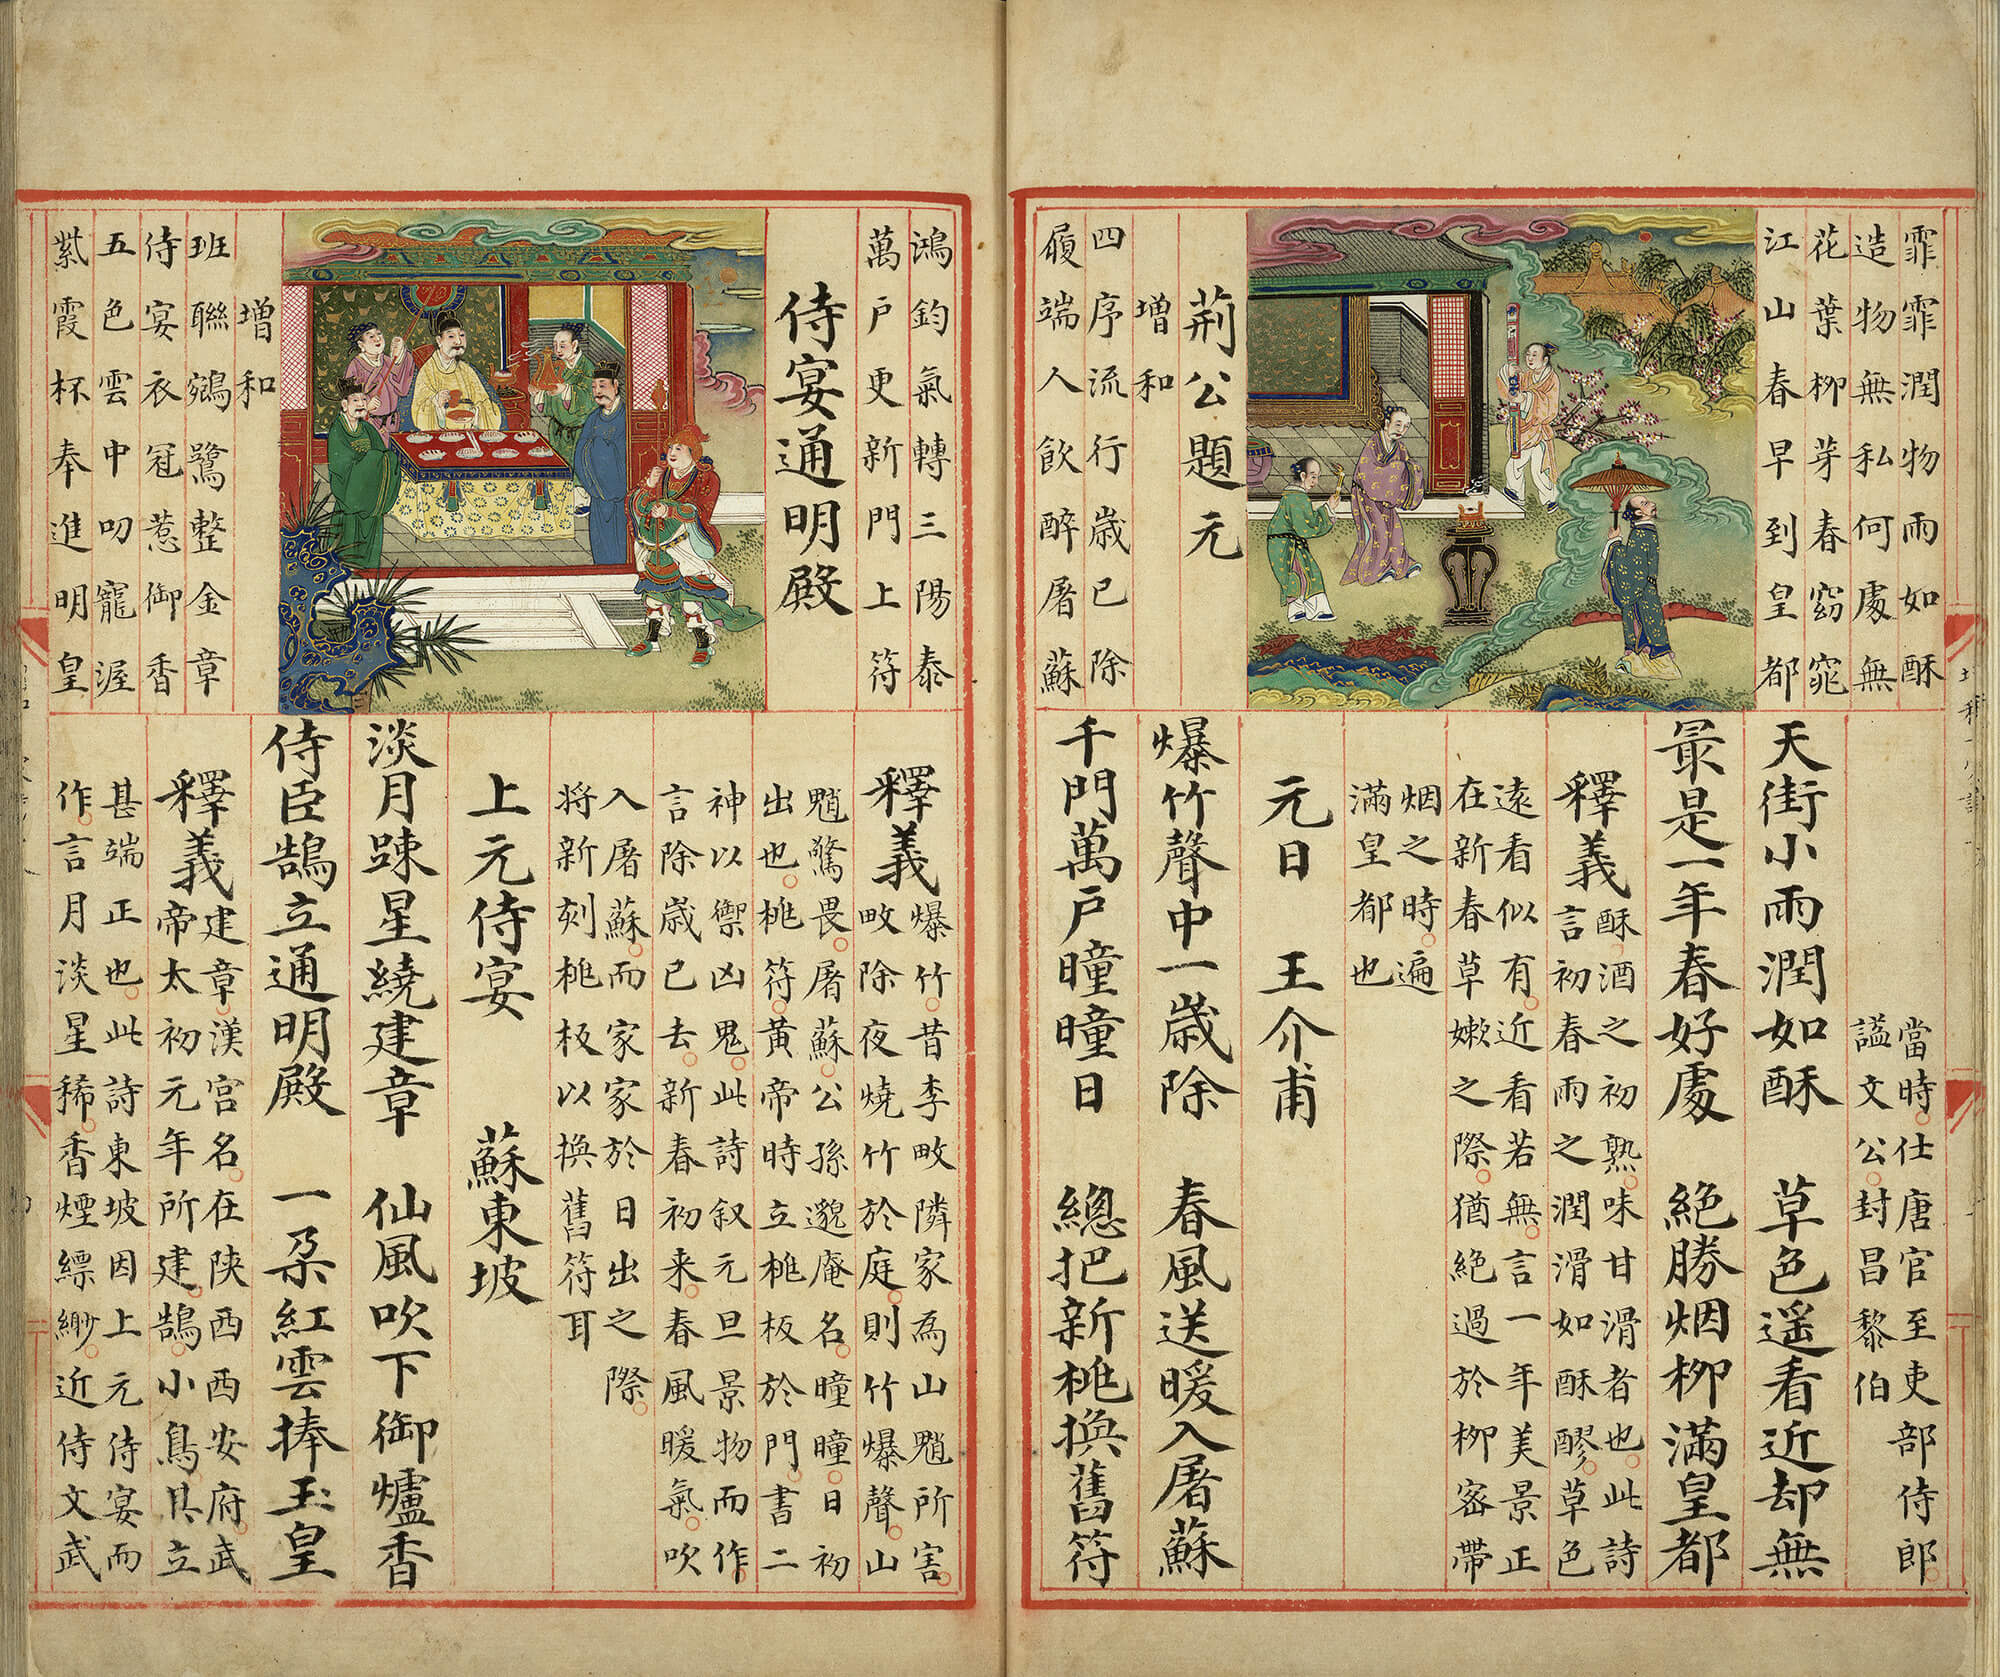 霏霏潤物雨如酥
造物無私何處無
花葉柳芽春窈窕
江山春早到皇都
荊公題元
增和
四序流行歲已除
履端人飲醉屠蘇
當時。仕唐官至吏部侍郎。
謚文公。封昌黎伯
天街小雨潤如酥　草色遥看近却無
最是一年春好處　絕勝烟柳滿皇都
釋義
酥酒之初熟。味甘滑者也。此詩
言初春雨之潤滑如酥醪。草色
遠看似有。近看若無。言一年美景正
在新春草嫰之際。猶絕過於柳宻帶
烟之時。遍
滿皇都也
元日　王介甫
爆竹聲中一歲除　春風送暖入屠蘇
千門萬戶曈曈日　總把新桃換舊符
鴻鈞氣轉三陽泰
萬戶更新門上符
侍宴通明殿
增和
班聯鵷鷺整金章
侍宴衣冠惹御香
五色雲中叨寵渥
紫霞杯奉進明皇
釋義
爆竹。昔李畋隣家為山魈所害。
畋除夜燒竹於庭。則竹爆聲。山
魈驚畏。屠蘇。公孫邈庵名。曈曈。日初
出也。桃符。黃帝時立桃板於門。書二
神以禦凶鬼。此詩叙元旦景物而作。
言除歲已去。新春初来。春風暖氣。吹
入屠蘇。而家家於日出之際。
將新刻桃板以換舊符耳
上元侍宴　蘇東坡
淡月踈星繞建章　仙風吹下御爐香
侍臣鵠立通明殿　一朶紅雲捧玉皇
釋義
建章。漢宮名。在陝西西安府。武
帝太初元年所建。鵠。小鳥。其立
甚端正也。此詩東坡因上元侍宴而
作。言月淡星稀。香煙縹緲。近侍文武